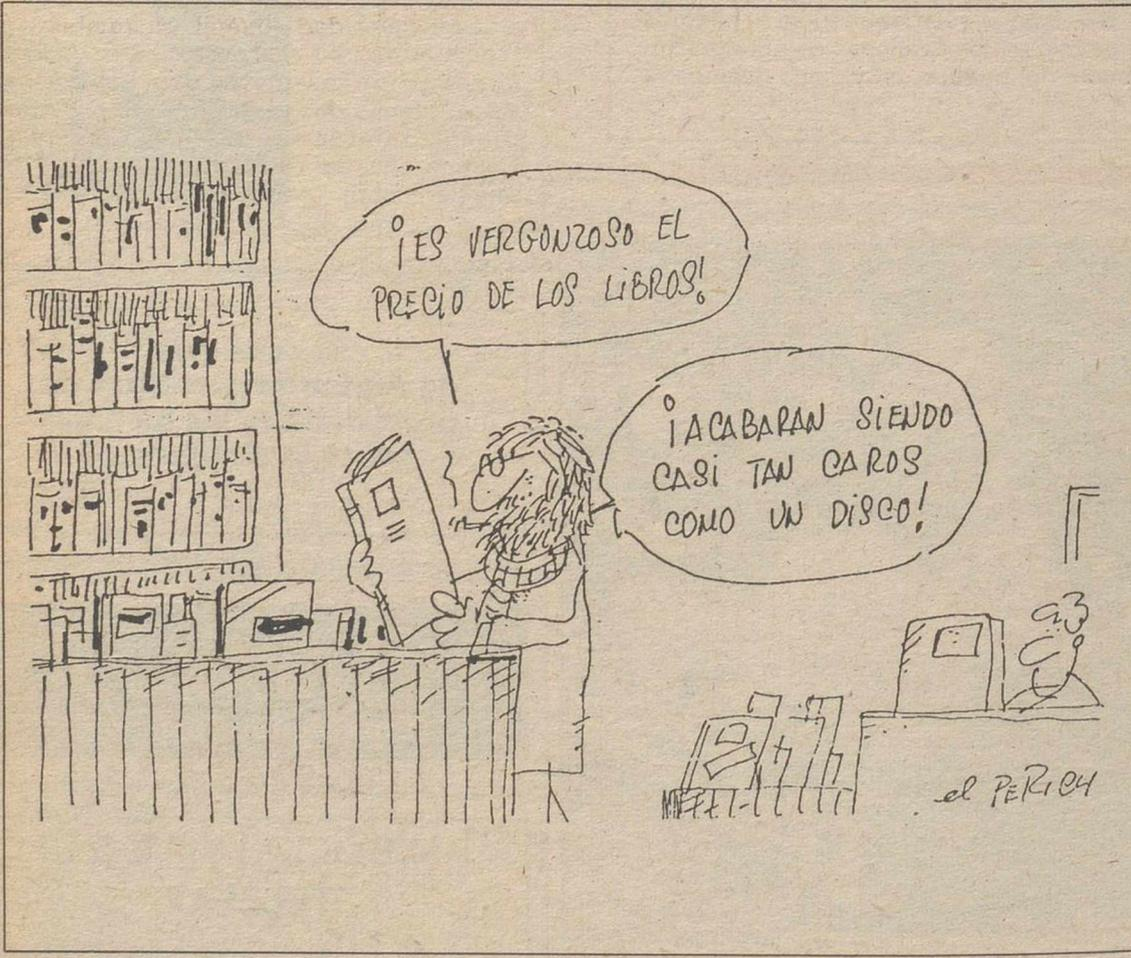 ¡ES VERGONZOSO EL
PRECIO DE LOS LIBROS!
¡ACABARAN SIENDO
CASI TAN CAROS
COMO UN DISCO!
el PERICH